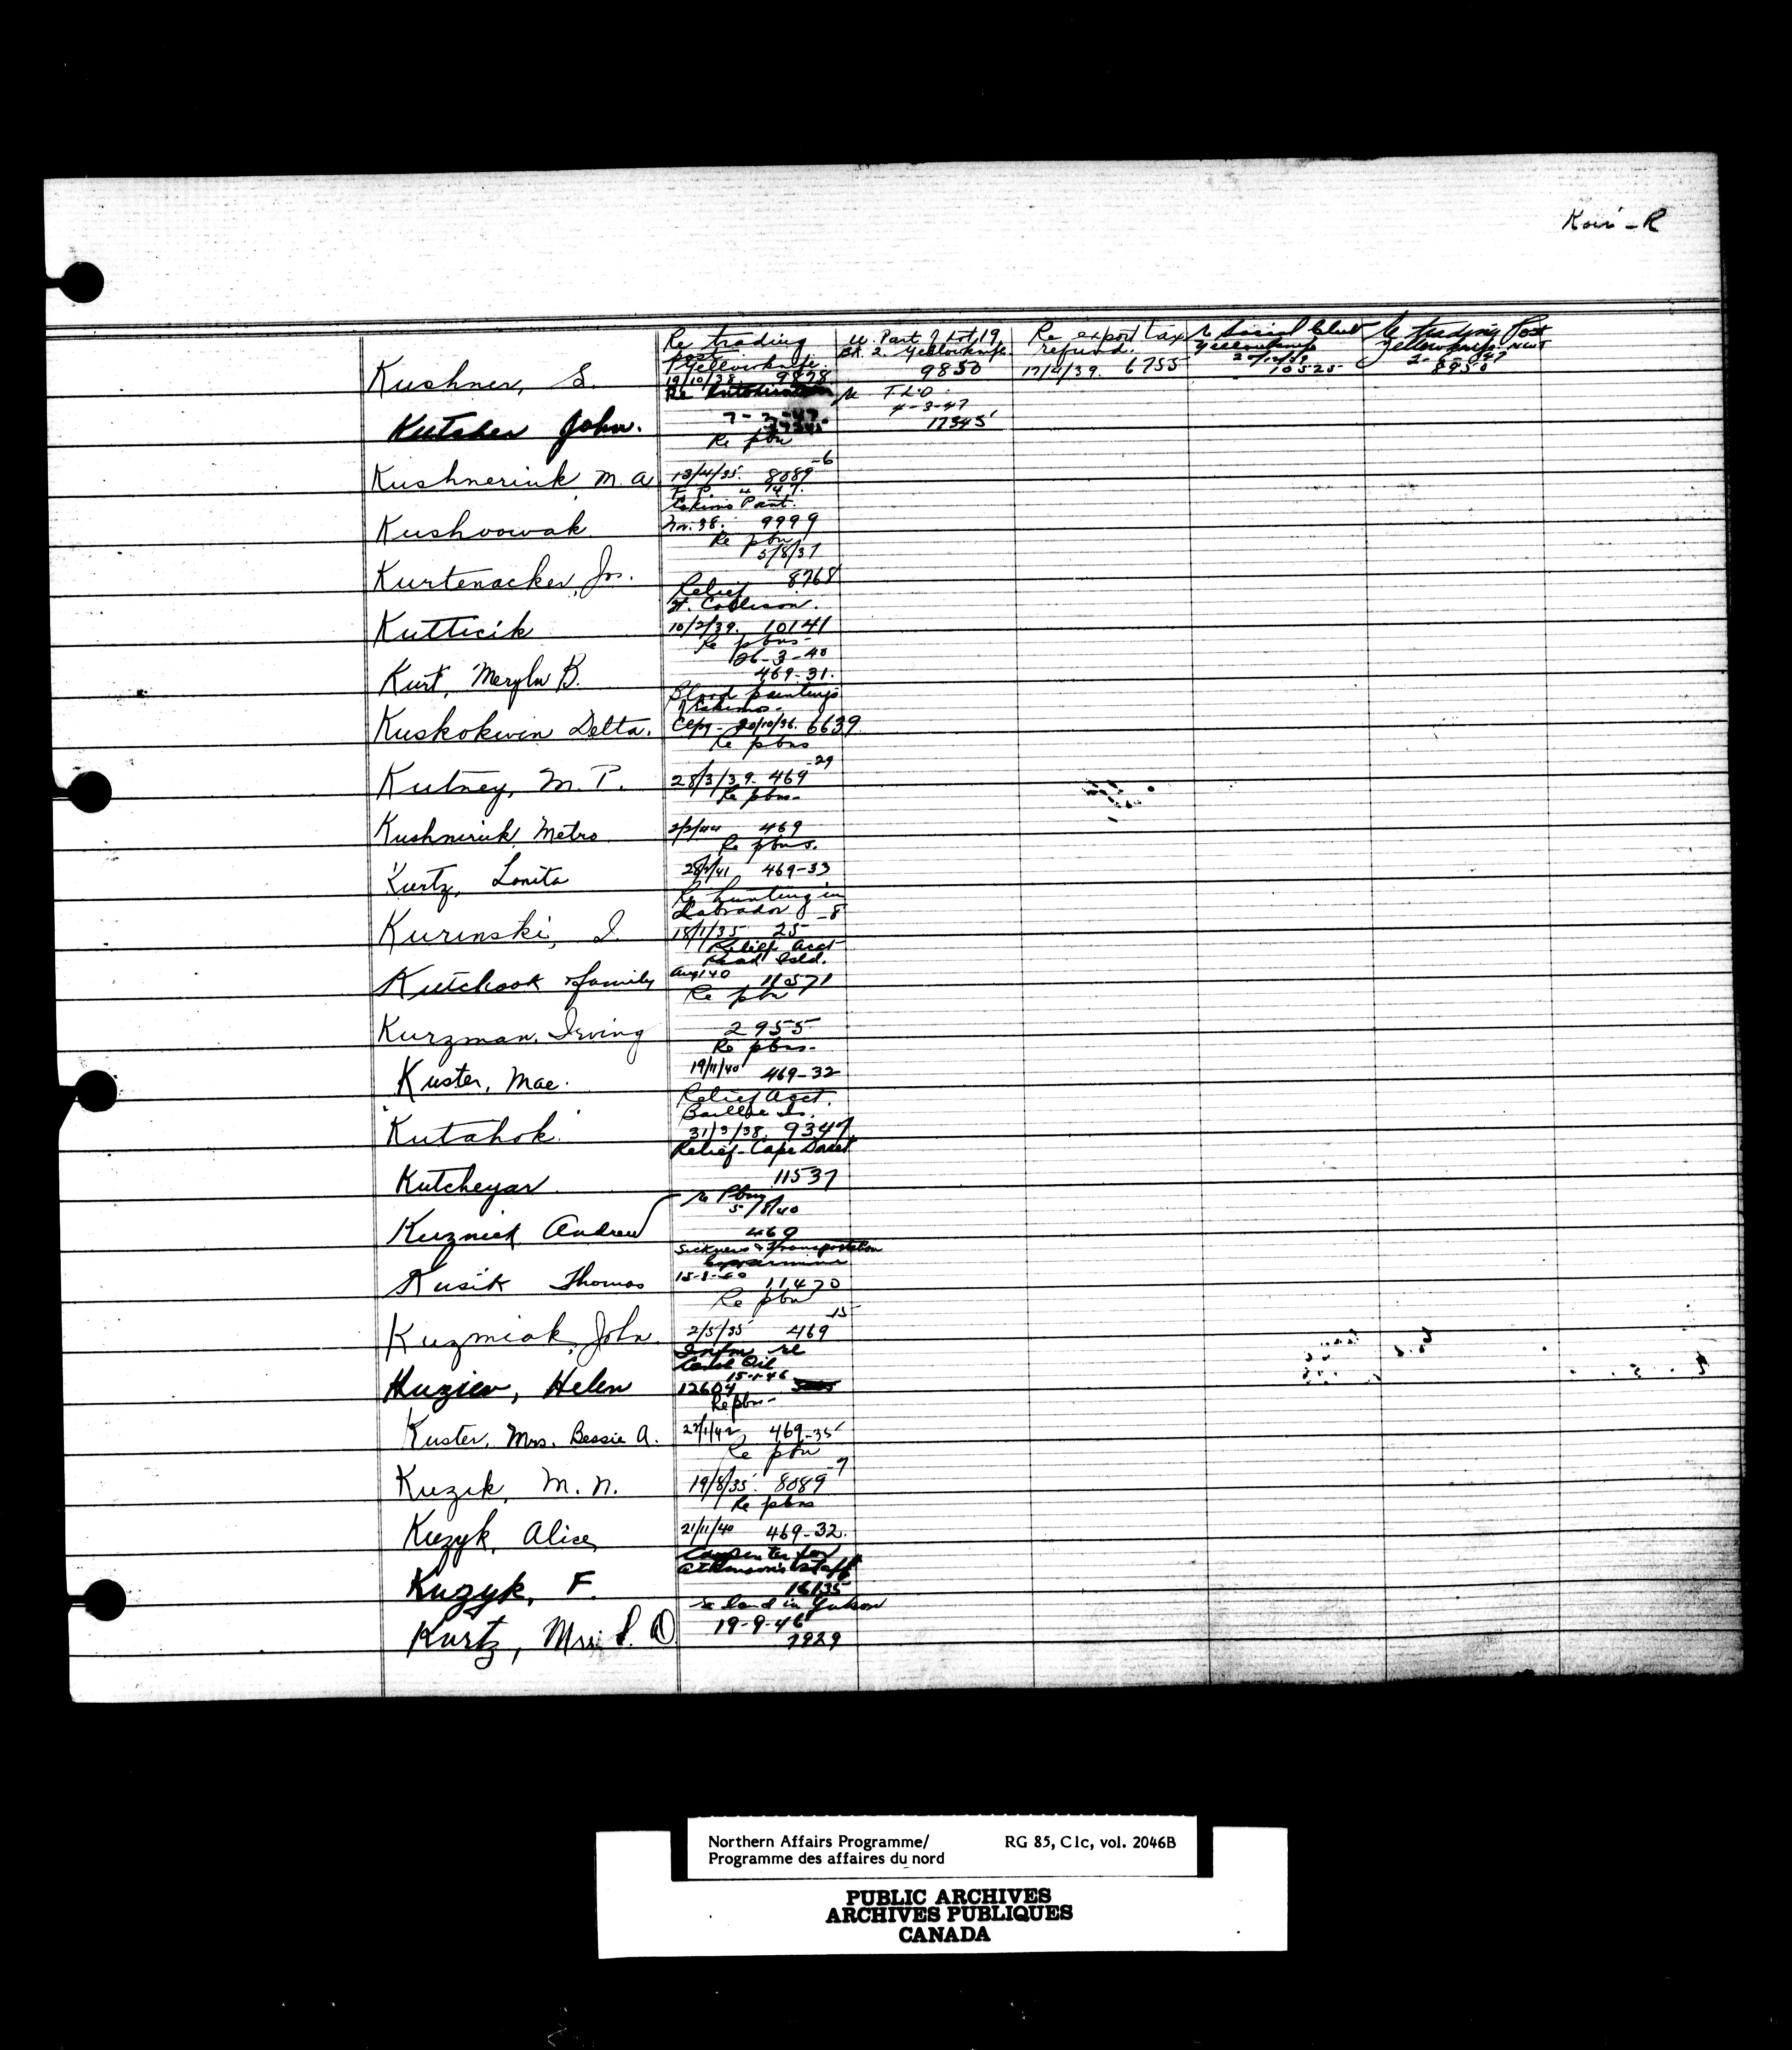 Kushner, S.
Re trading
post
Yellowknife.
19/10/38. 9878
re Part of Lot 19
Bk. 2. Yellowknife
9850
Re export tax
refund.
17/4/39. 6755
re Social Club
Yellowknife
10525
re trading Post
Yellowknife NWT
Kutcher John.
Re
7-2-47
re T.L.O.
4-3-47
17345
Kushneriuk M. A.
Re pbn
-6
13/4/35. 8089
Kushoowak
Eskimo Pant.
Nov. 38. 9999
Kurtenacker, Jos.
Re pbn
5/8/37
8768
Kutticik
Relief
10/2/39. 10141
Kurt, Meryln B.
Re pbns-
26-3-40
469-31.
Kuskokwin Delta.
Blood paintings
Eskimos-
Clpg- 20/10/36. 6639.
Kutney, M. P.
Re pbns
-29
28/3/39. 469
Kushniruk, Metro
Re pbns-
2/2/44 469
Kurtz, Lonita
Re pbns.
28/2/41 469-33
Kurinski, I.
Re hunting in
Labrador
-8
18/1/35 25
Kutchook & family
Relief Acct
Aug/40 11571
Kurzman, Irving
Re pbn
2955
Kuster, Mae.
Re pbns-
19/11/40 469-32
Kutahok
Relief Acct.
Baillie Is.
31/3/38. 9347
Kutcheyar
Relief-Cape Dorset
11537
Kuzniek Andrew
re Pbns
5/8/40
469
Kusik Thomas
Sickness & Transportation
15-8-40 11470
Kuzmiak, John.
Re pbn
-15
2/5/35 469
Kuziew, Helen
Infm re
Canol Oil
15-1-46
12604
Kuster, Mrs. Bessie A.
Re pbns-
27/1/42 469-35
Kuzik, M. N.
Re pbn
-7
19/8/35. 8089
Kuzyk, Alice
Re pbns
21/11/40 469-32.
Kuzyk, F.
Carpenter for
Atkinson's staff
16135
Kurtz, Mrs. S. O.
re land in Yukon
19-9-46
7929
Northern Affairs Programme/ RG 85, C1c, vol. 2046B
Programme des affaires du nord
PUBLIC ARCHIVES
ARCHIVES PUBLIQUES
CANADA